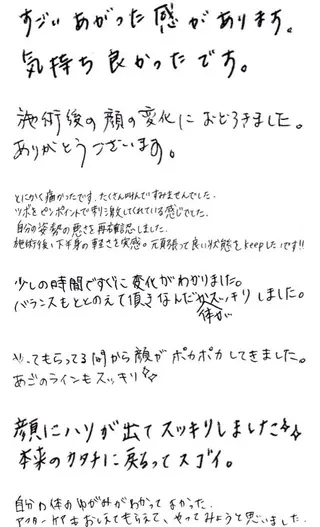 すごい あがった 感 があります。
気持ち 良かった です。
施術後の 顔の 変化に おどろきました。
ありがとうございます。
とにかく痛かったです。たくさん叫んですみませんでした。
ツボを ピンポイントで 刺激してくれている感じでした。
自分の姿勢の悪さを再確認しました。
施術後、下半身の軽さを実感。元気張って良い状態をkeepしたいです!!
少しの時間ですぐに変化がわかりました。
バランスもととのえて頂きなんだかスッキリしました。
体が
やってもらってる間から顔がポカポカしてきました。
あごのラインもスッキリ✨
顔にハリが出てスッキリしました✨
本来のカタチに戻るってスゴイ。
自分の体のゆがみがわかってよかった。
アフターケアもおしえてもらえて、やってみようと思いました。